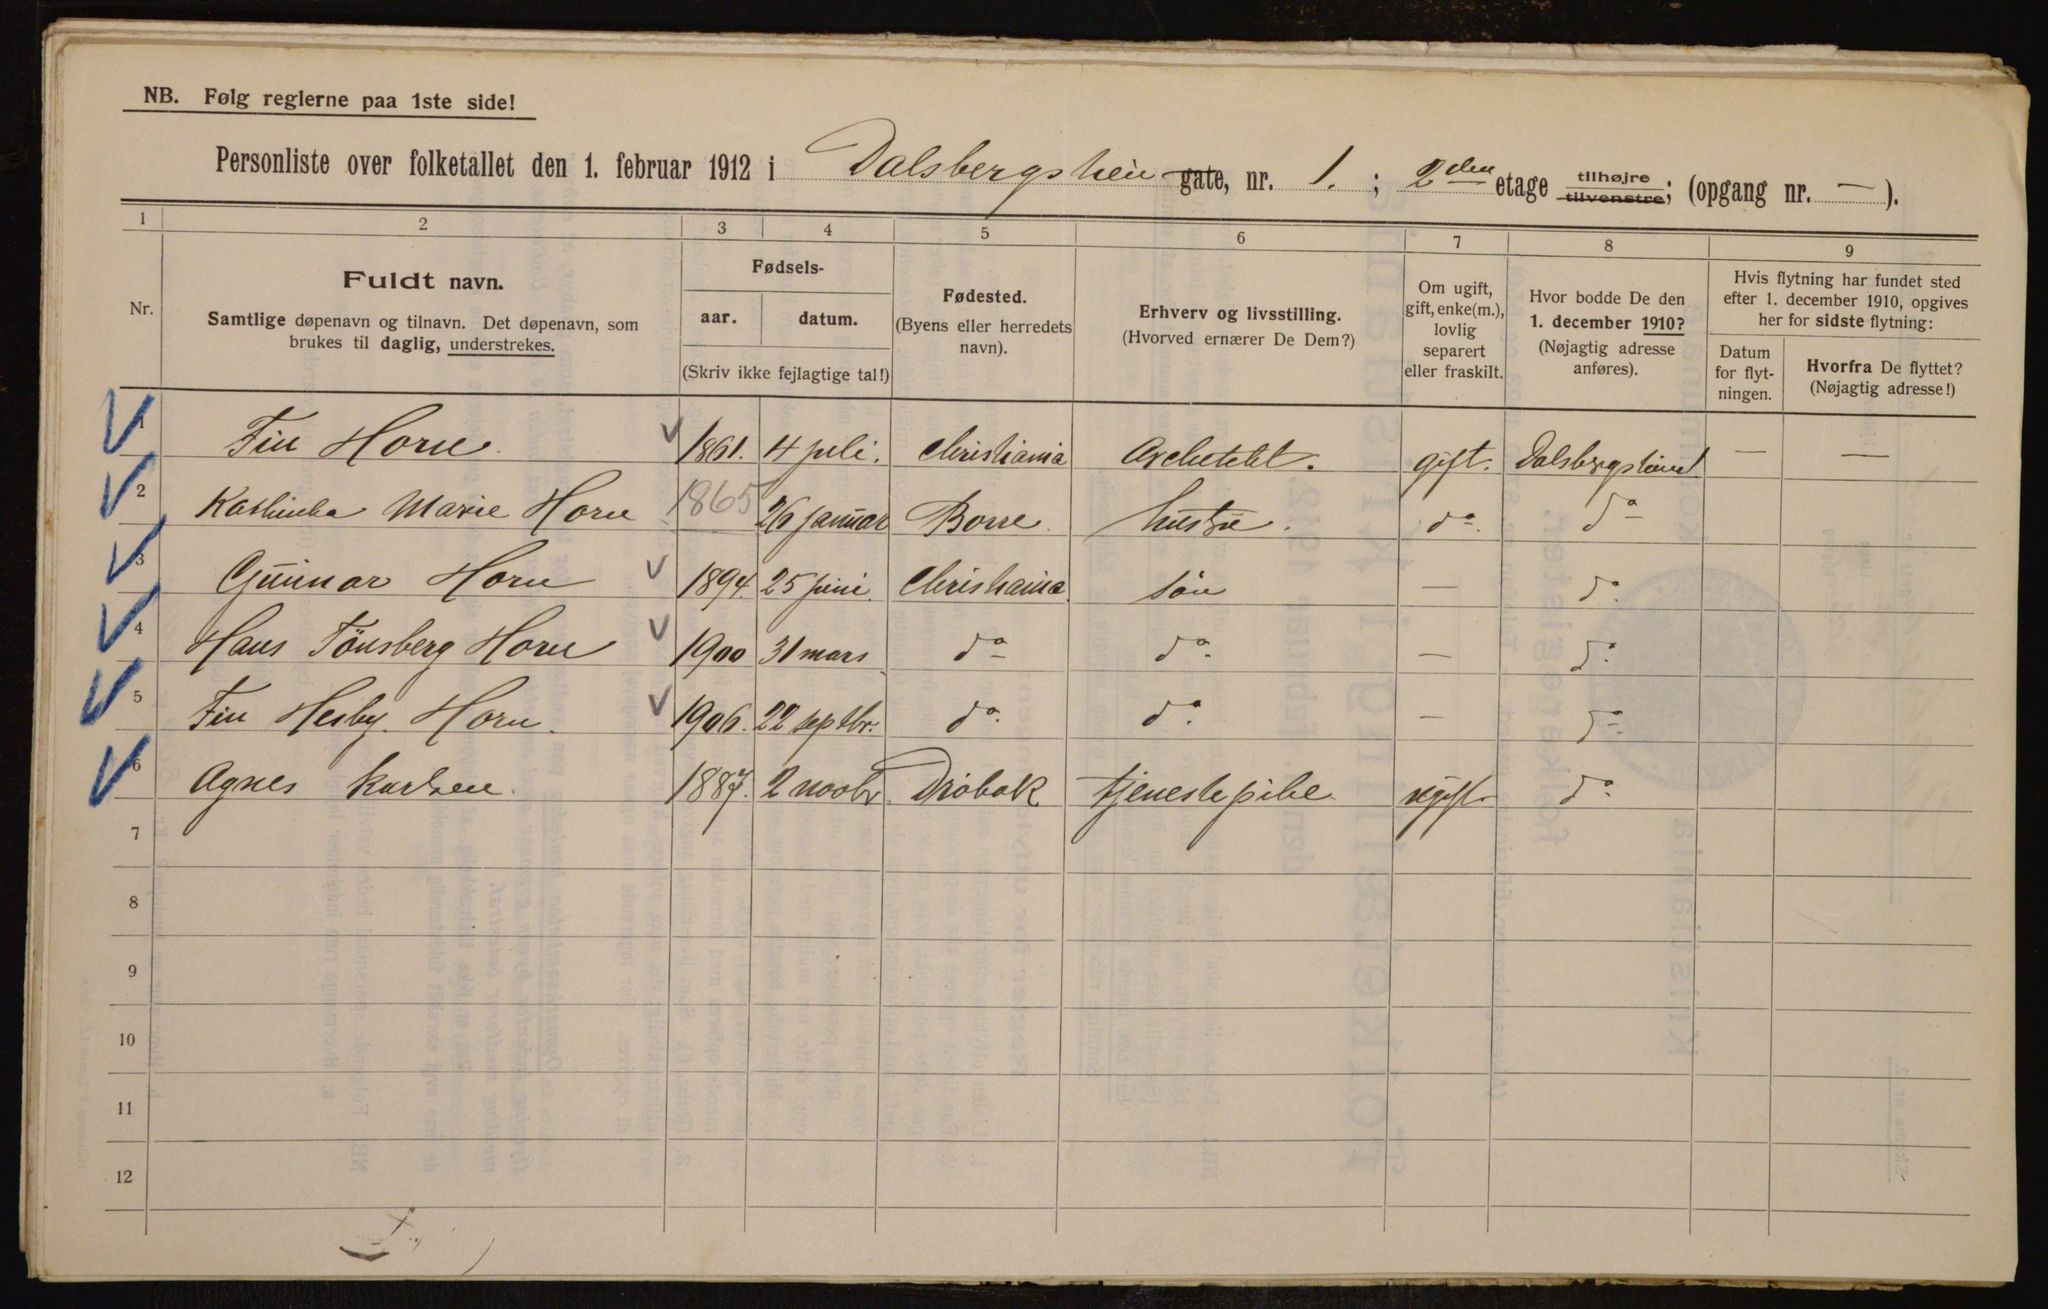 NB. Følg reglerne paa 1ste side!
Personliste over folketallet den 1. februar 1912 i Dalsbergstien gate, nr. 1. ; 2den etage tilhøjre tilvenstre; (opgang nr. — ).
1 2 3 4 5 6 7 8 9
Nr.
Fuldt navn.
Samtlige døpenavn og tilnavn. Det døpenavn, som
brukes til daglig, understrekes.
Fødsels-
aar. datum.
(Skriv ikke fejlagtige tal!)
Fødested.
(Byens eller herredets
navn).
Erhverv og livsstilling.
(Hvorved ernærer De Dem?)
Om ugift,
gift, enke(m.),
lovlig
separert
eller fraskilt.
Hvor bodde De den
1. december 1910?
(Nøjagtig adresse
anføres).
Hvis flytning har fundet sted
efter 1. december 1910, opgives
her for sidste flytning:
Datum
for flyt-
ningen.
Hvorfra De flyttet?
(Nøjagtig adresse!)
1 Fin Horn. 1861. 4 juli. Christiania Architekt. gift. Dalsbergstien 1 — —
2 Kathinka Marie Horn 1865 26 januar Borre. hustru. do. do
3 Gunnar Horn 1894. 25 juni. Christiania. søn — do.
4 Hans Tønsberg Horn 1900 31 mars do do. — do.
5 Fin Hesby. Horn. 1906. 22 septbr. do. do. — do.
6 Agnes Karlsen. 1887. 2 novbr. Drøbak tjenestepike ugift. do.
7
8
9
10
11
12